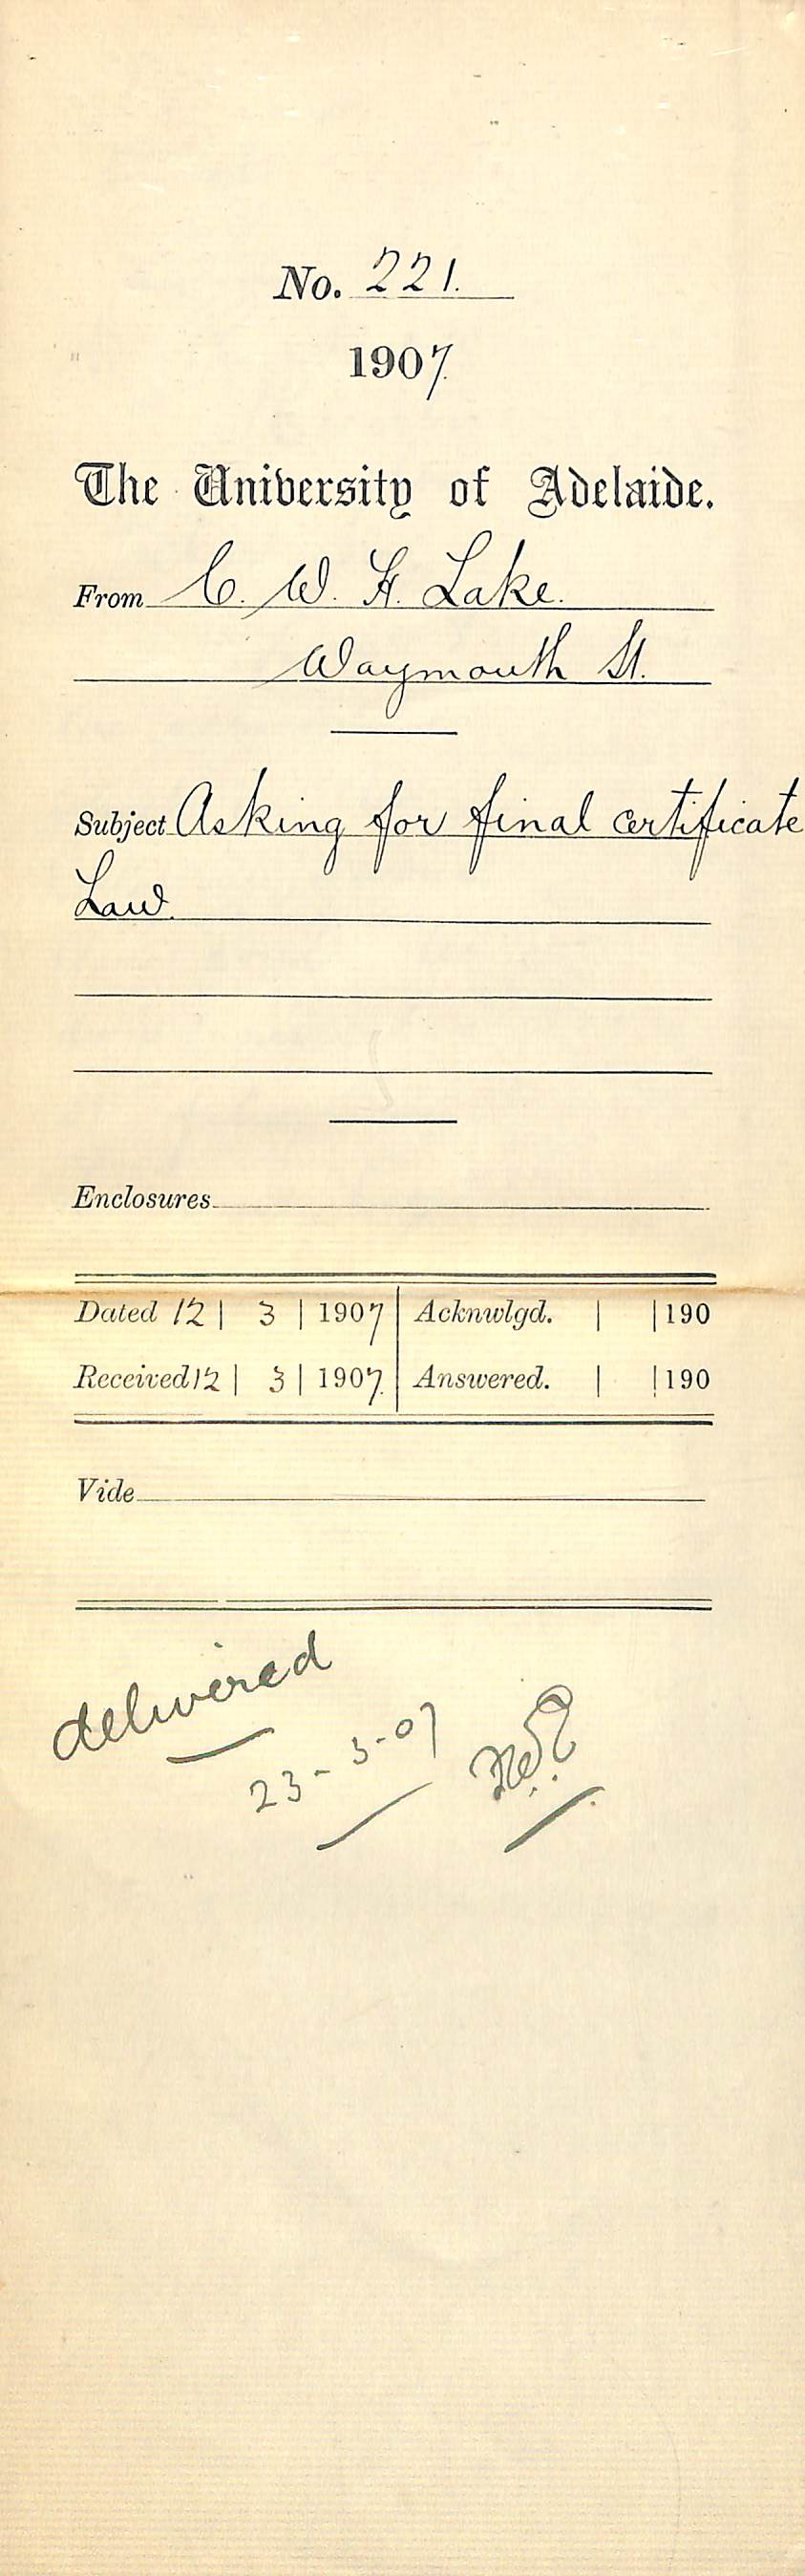 No. 221.
1907
The University of Adelaide.
From C. W. H. Lake.
Waymouth St.
Subject Asking for final certificate
Law.
Enclosures
Dated 12 | 3 | 1907 Acknwlgd. | | 190
Received 12 | 3 | 1907. Answered. | | 190
Vide
delivered
23-3-07